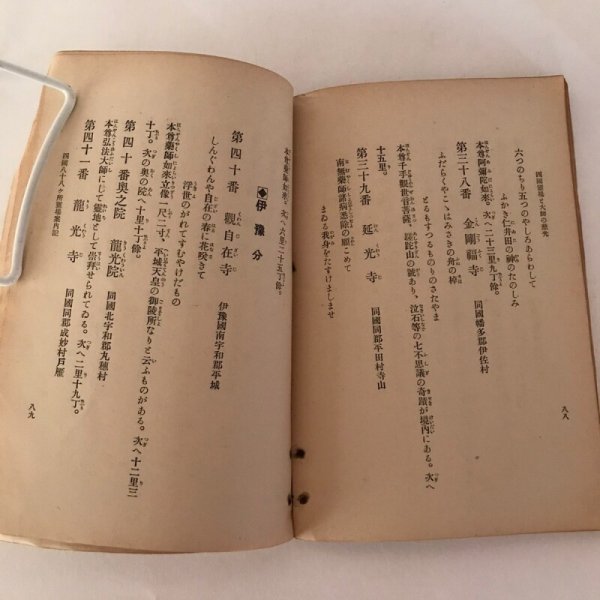 四國靈場と大師の靈光
六つのちり五つのやしろあらわして
ふかき仁井田の神のたのしみ
本尊阿彌陀如來。次へ二十三里九丁餘。
第三十八番 金剛福寺 同國幡多郡伊佐村
ふだらくやこゝはみさきの舟の棹
とるもすつるものりのさだやま
本尊千手觀世音菩薩。蹉跎山の號あり、汶石等の七不思議の奇蹟が境內にある。次へ
十五里。
第三十九番 延光寺 同國同郡平田村寺山
南無藥師諸病悉除の願こめて
まゐる我身をたすけましませ
八八
本尊藥師如來。次へ六里二十五丁餘。
伊豫分
第四十番 觀自在寺 伊豫國南宇和郡平城
しんぐわんや自在の春に花咲きて
浮世のがれてすむやけだもの
本尊藥師如來立像一尺二寸、平城天皇の御陵所なりと云ふものがある。次へ十二里三
十丁。次の奥の院へ十里十丁餘。
第四十番奥之院 龍光院 同國北宇和郡丸穗村
本尊弘法大師にして靈地として崇拜せられてゐる。次へ二里十九丁。
第四十一番 龍光寺 同國同郡成妙村戸雁
四國八十八ヶ所靈場案內記
八九